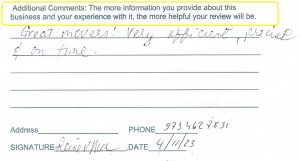 Additional Comments: The more information you provide about this
business and your experience with it, the more helpful your review will be.
Great movers! Very efficient, precise
& on time.
Address PHONE 973 4627831
SIGNATURE DATE 4/11/23